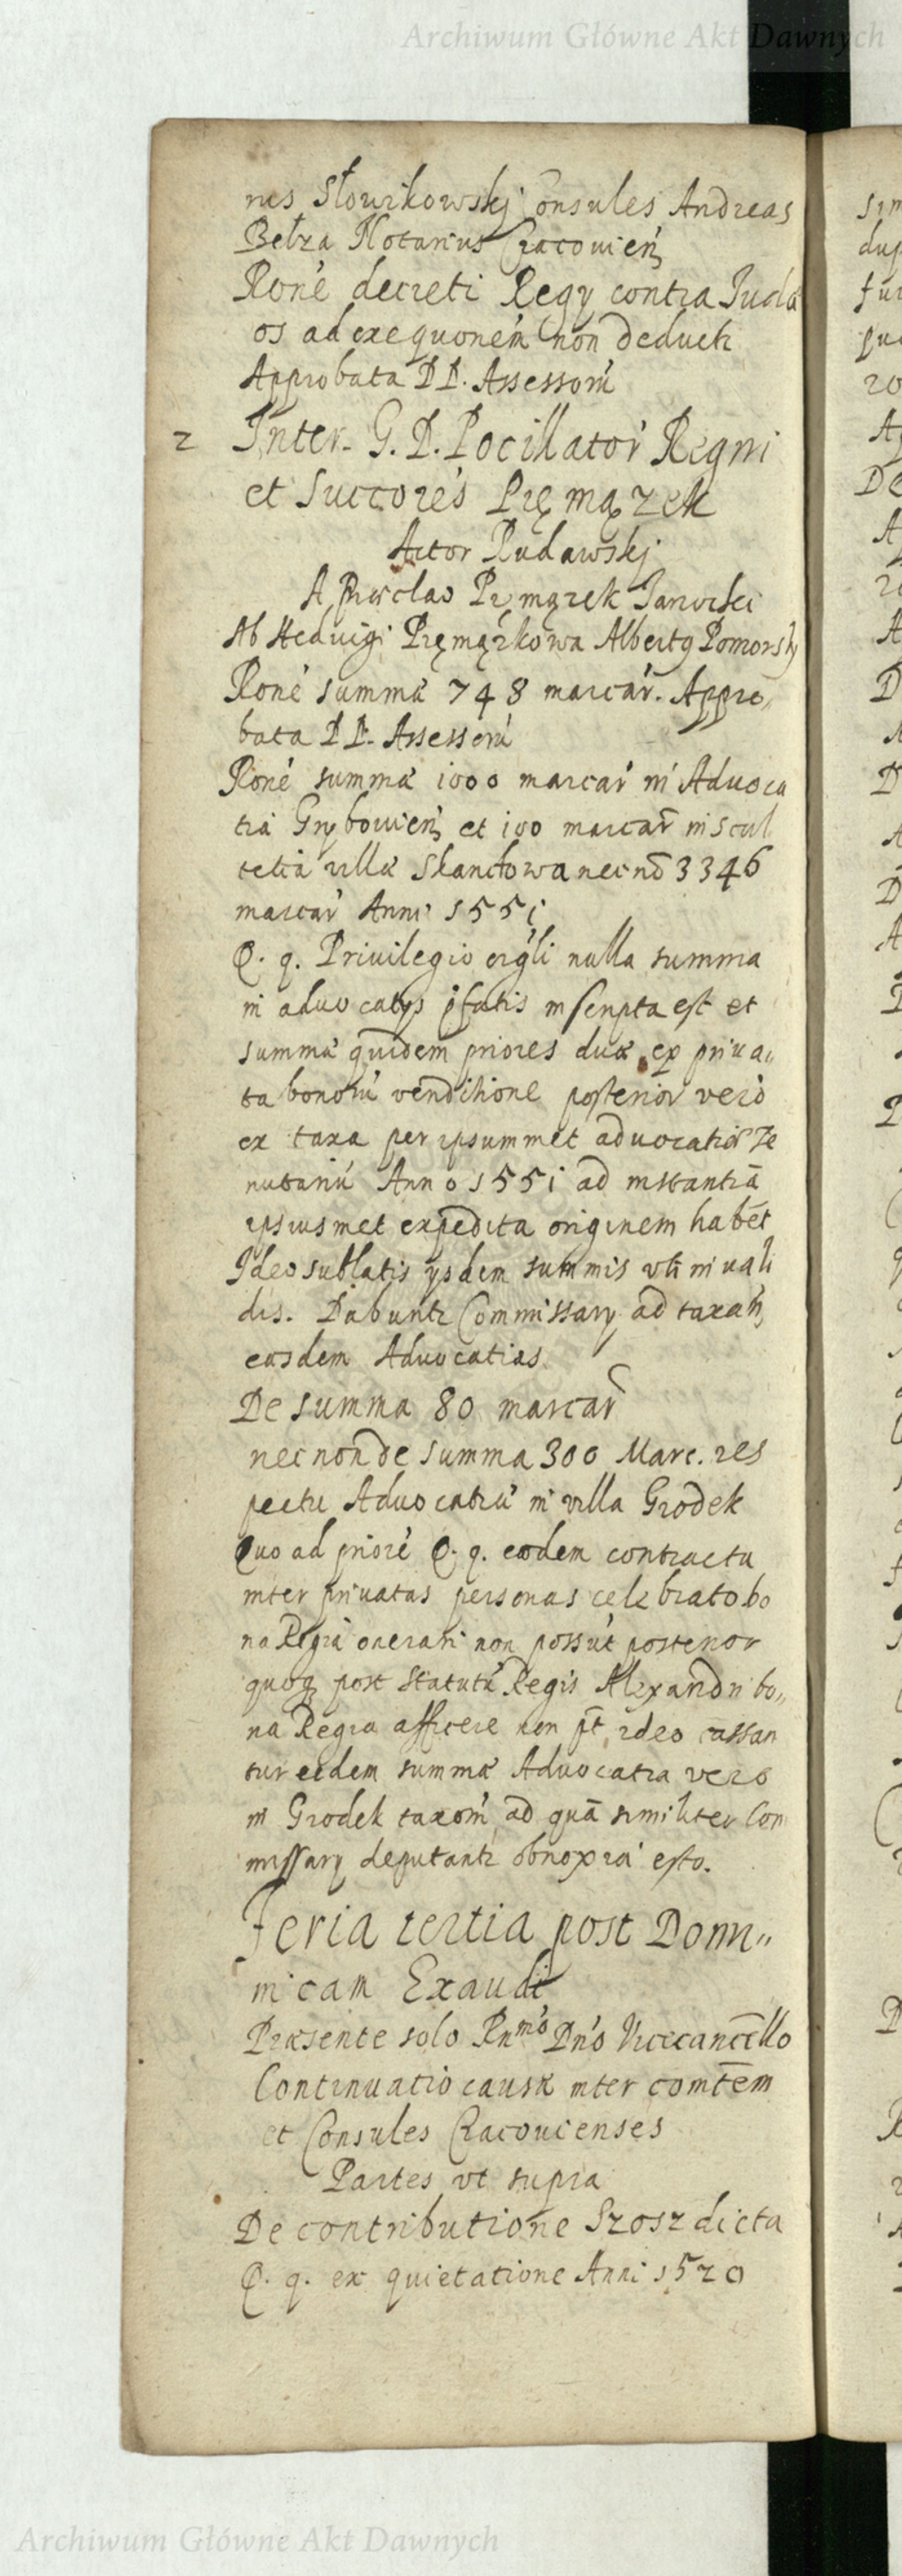 Archiwum Główne Akt Dawnych
nus Słowikowskj Consules Andreas
Betza Notarius Cracovien
Roné decreti Regy contra Judæ
os ad exequoném non deducti
Approbata DD. Assessorú
2 Inter G. D. Pocillator Regni
et Succorés Pręmązek
Actor Rudawskj
A Pręmązek Janusci
Ab Hedvigi Pręmążkowa Alberty Pomorsky
Roné summæ 748 marcar. Appro„
bata DD. Assessorú
Roné summæ 1000 marcar in Advoca
tia Grybovien et 100 marcar in scul
tetia villæ Skanctowa necnõ 3346
marcar Anni 1551
Q. q. Privilegio nulla summa
in advocatys pfatis inscripta est et
summæ quidem priores duæ ex priua„
ta bonorú venditione posterior vero
ex taxa per ipsummet advocatiæ Te
nutariú Anno 1551 ad instantiã
ipsiusmet expedita originem habet
Ideo sublatis ysdem summis vti inuali
dis. Dabuntr Commissary ad taxam
easdem Advocatias
De summa 80 marcar
necnon de summa 300 Marc. res
pectu Advocatiæ in villa Grodek
Quo ad prioré Q. q. eodem contractu
inter priuatas personas celebrato bo
na Regia onerari non possút posterior
quoq post statutú Regis Alexandri bo„
na Regia afficere non pt ideo cassan
tur eedem summæ Advocatia vero
in Grodek taxoni ad quã similiter Com
missary deputantr obnoxia esto.
Feria tertia post Domi„
nicam Exaudi
Præsente solo Rnmo Dno Vicecancello
Continuatio causæ inter comtem
et Consules Cracouienses
Partes vt supra
De contributione Szosz dicta
Q. q. ex quietatione Anni 1520
Archiwum Główne Akt Dawnych